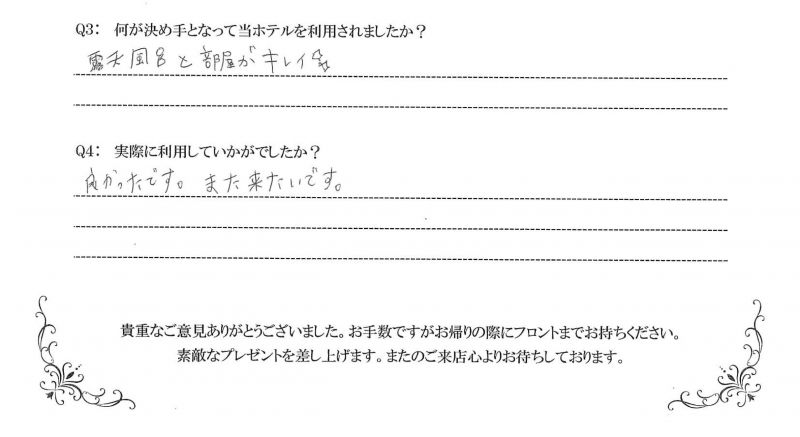 Q3： 何が決め手となって当ホテルを利用されましたか？
露天風呂と部屋がキレイ☆
Q4： 実際に利用していかがでしたか？
良かったです。また来たいです。
貴重なご意見ありがとうございました。お手数ですがお帰りの際にフロントまでお持ちください。
素敵なプレゼントを差し上げます。またのご来店心よりお待ちしております。